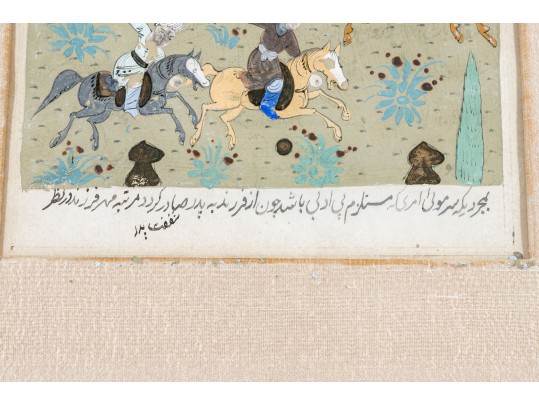 بمجرد یکه سر موئی امری که مستلزم بی ادبی باشد چون از فرزند به پدر صادر گردد مرتبه مهر فرزند در نظر
شفقت پدر